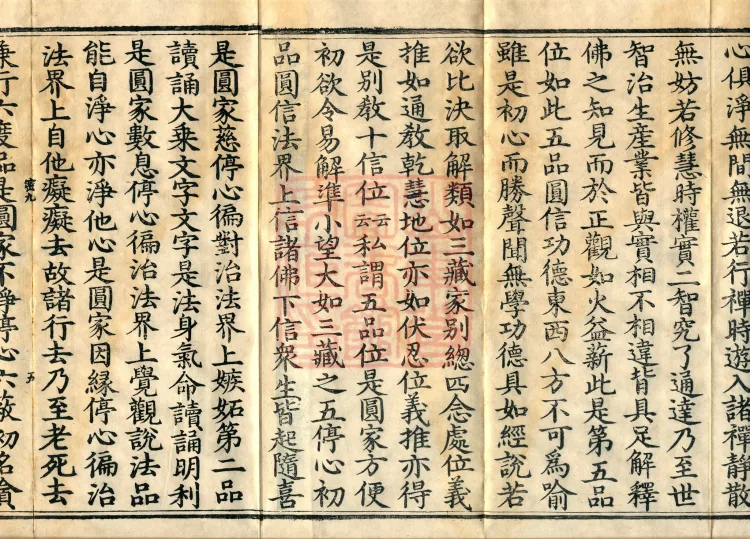 心俱淨無間無退若行禪時遊入諸禪靜散
無妨若修慧時權實二智究了通達乃至世
智治生産業皆與實相不相違背具足解釋
佛之知見而於正觀如火益薪此是第五品
位如此五品圓信功德東西八方不可爲喻
雖是初心而勝聲聞無學功德具如經說若
欲比決取解類如三藏家別緫四念處位義
推如通教乾慧地位亦如伏忍位義推亦得
是別教十信位云云私謂五品位是圓家方便
初欲令易解準小望大如三藏之五停心初
品圓信法界上信諸佛下信衆生皆起隨喜
是圓家慈停心徧對治法界上嫉妬第二品
讀誦大乘文字文字是法身氣命讀誦明利
是圓家數息停心徧治法界上覺觀說法品
能自淨心亦淨他心是圓家因緣停心徧治
法界上自他癡癡去故諸行去乃至老死去
兼行六度品是圓家不淨停心六蔽初名貪
五